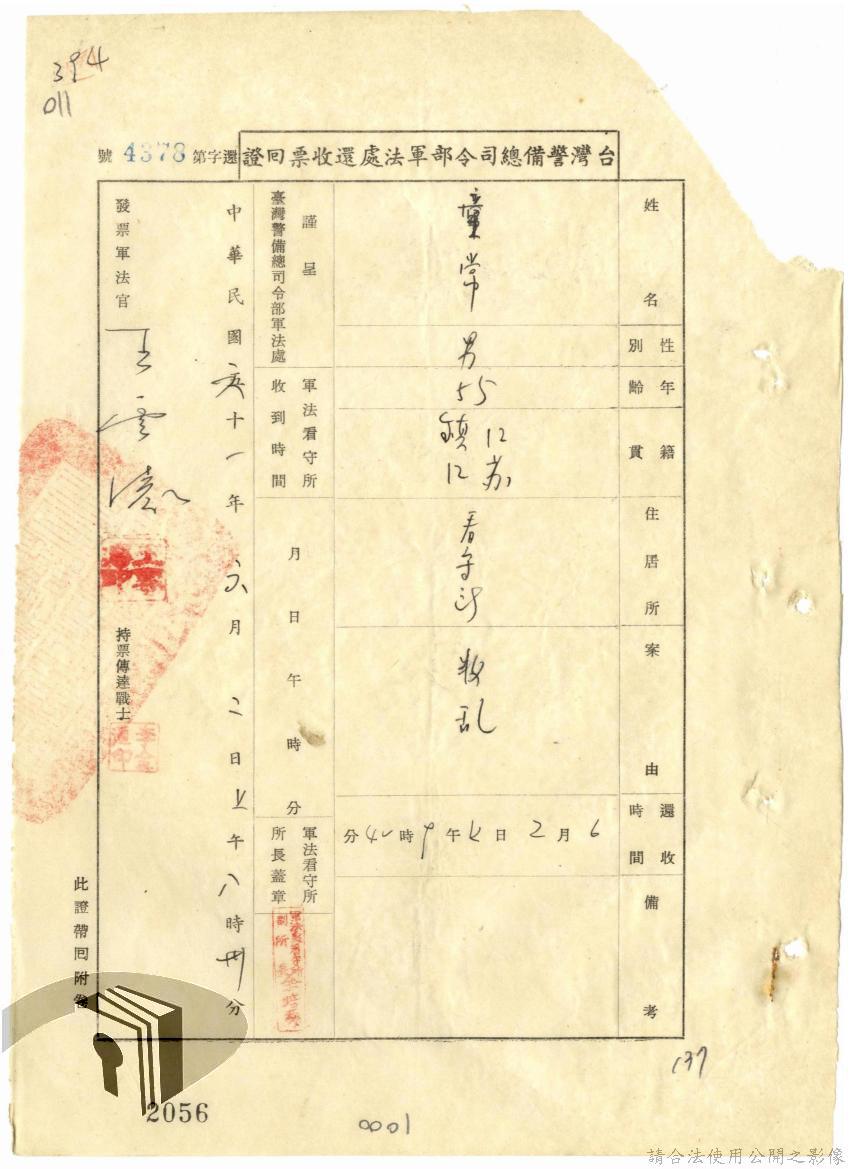 394
011
台灣警備總司令部軍法處還收票回證
還字第4378號
姓名
童常
性別
男
年齡
55
籍貫
江苏
鎮江
住居所
看守所
案由
叛乱
還收時間
6月2日上午9時40分
備考
謹呈
臺灣警備總司令部軍法處
軍法看守所
收到時間
月日午時分
軍法看守所
所長蓋章
中華民國六十一年六月二日上午八時卅分
發票軍法官
王雲濤
持票傳達戰士
此證帶回附卷
137
2056
0001
請合法使用公開之影像